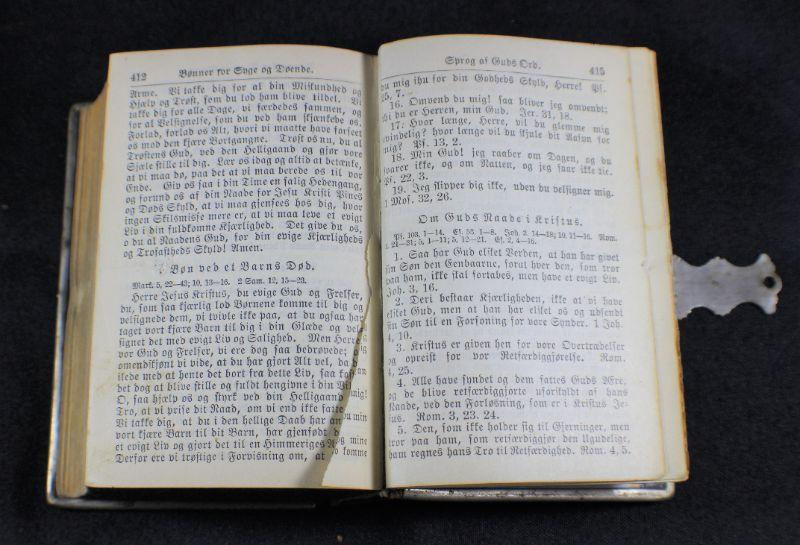 412 Bønner for Syge og Døende.
Arme. Vi takke dig for al din Miskundhed og
Hjælp og Trøst, som du lod ham blive tildel. Vi
takke dig for alle Dage, vi færdedes sammen, og
for al Velsignelse, som du ved ham skjænkede os.
Forlad, forlad os Alt, hvori vi maatte have forseet
os mod den kjære Bortgangne. Trøst os nu, du al
Trøstens Gud, ved den Helligaand og gjør vore
Sjæle stille til dig. Lær os idag og altid at betænke,
at vi maa dø, paa det at vi maa berede os til vor
Ende. Giv os saa i din Time en salig Hedengang,
og forund os af din Naade for Jesu Kristi Pines
og Døds Skyld, at vi maa gjensees hos dig, hvor
ingen Skilsmisse mere er, at vi maa leve et evigt
Liv i din fuldkomne Kjærlighed. Det give du os,
o du al Naadens Gud, for din evige Kjærligheds
og Trofastheds Skyld! Amen.
Bøn ved et Barns Død.
Mark. 5, 22—43; 10, 13—16. 2 Sam. 12, 15—23.
Herre Jesus Kristus, du evige Gud og Frelser,
du, som saa kjærlig lod Børnene komme til dig og
velsignede dem, vi tvivle ikke paa, at du ogsaa har
taget vort kjære Barn til dig i din Glæde og vel-
signet det med evigt Liv og Salighed. Men Herre,
vor Gud og Frelser, vi ere dog saa bedrøvede;
omendskjønt vi vide, at du har gjort Alt vel, da
ilede med at hente det bort fra dette Liv, saa
det dog at blive stille og fuldt hengivne i din
O, saa hjælp os og styrk ved din Helligaand
Tro, at vi prise dit Raad, om vi end ikke fatte
Vi takke dig, at du i den hellige Daab har
vort kjære Barn til dit Barn, har gjenfødt
et evigt Liv og gjort det til en Himmeriges
Derfor ere vi trøstige i Forvisning om, at
mig!
mine
komme
Sprog af Guds Ord. 415
du mig ihu for din Godheds Skyld, Herre! Ps.
25, 7.
16. Omvend du mig! saa bliver jeg omvendt;
thi du er Herren, min Gud. Jer. 31, 18.
17. Hvor længe, Herre, vil du glemme mig
evindelig? hvor længe vil du skjule dit Aasyn for
mig? Ps. 13, 2.
18. Min Gud! jeg raaber om Dagen, og du
svarer ikke, og om Natten, og jeg faar ikke
Ps. 22, 3.
19. Jeg slipper dig ikke, uden du velsigner mig.
1 Mos. 32, 26.
Om Guds Naade i Kristus.
Ps. 103, 1—14. Es. 53, 1—8. Joh. 3, 14—18; 10, 11—16. Rom.
21—31; 5, 1—11; 5, 12—21. Ef. 2, 4—16.
1. Saa har Gud elsket Verden, at han har givet
sin Søn den Eenbaarne, forat hver den, som tror
paa ham, ikke skal fortabes, men have et evigt Liv.
Joh. 3, 16.
2. Deri bestaar Kjærligheden, ikke at vi have
elsket Gud, men at han har elsket os og udsendt
sin Søn til en Forsoning for vore Synder. 1 Joh.
4, 10.
3. Kristus er given hen for vore Overtrædelser
og opreist for vor Retfærdiggjørelse. Rom.
4, 25.
4. Alle have syndet og dem fattes Guds Ære,
og de blive retfærdiggjorte uforskyldt af hans
Naade, ved den Forløsning, som er i Kristus Je-
sus. Rom. 3, 23. 24.
5. Den, som ikke holder sig til Gjerninger, men
tror paa ham, som retfærdiggjør den Ugudelige,
ham regnes hans Tro til Retfærdighed. Rom. 4, 5.